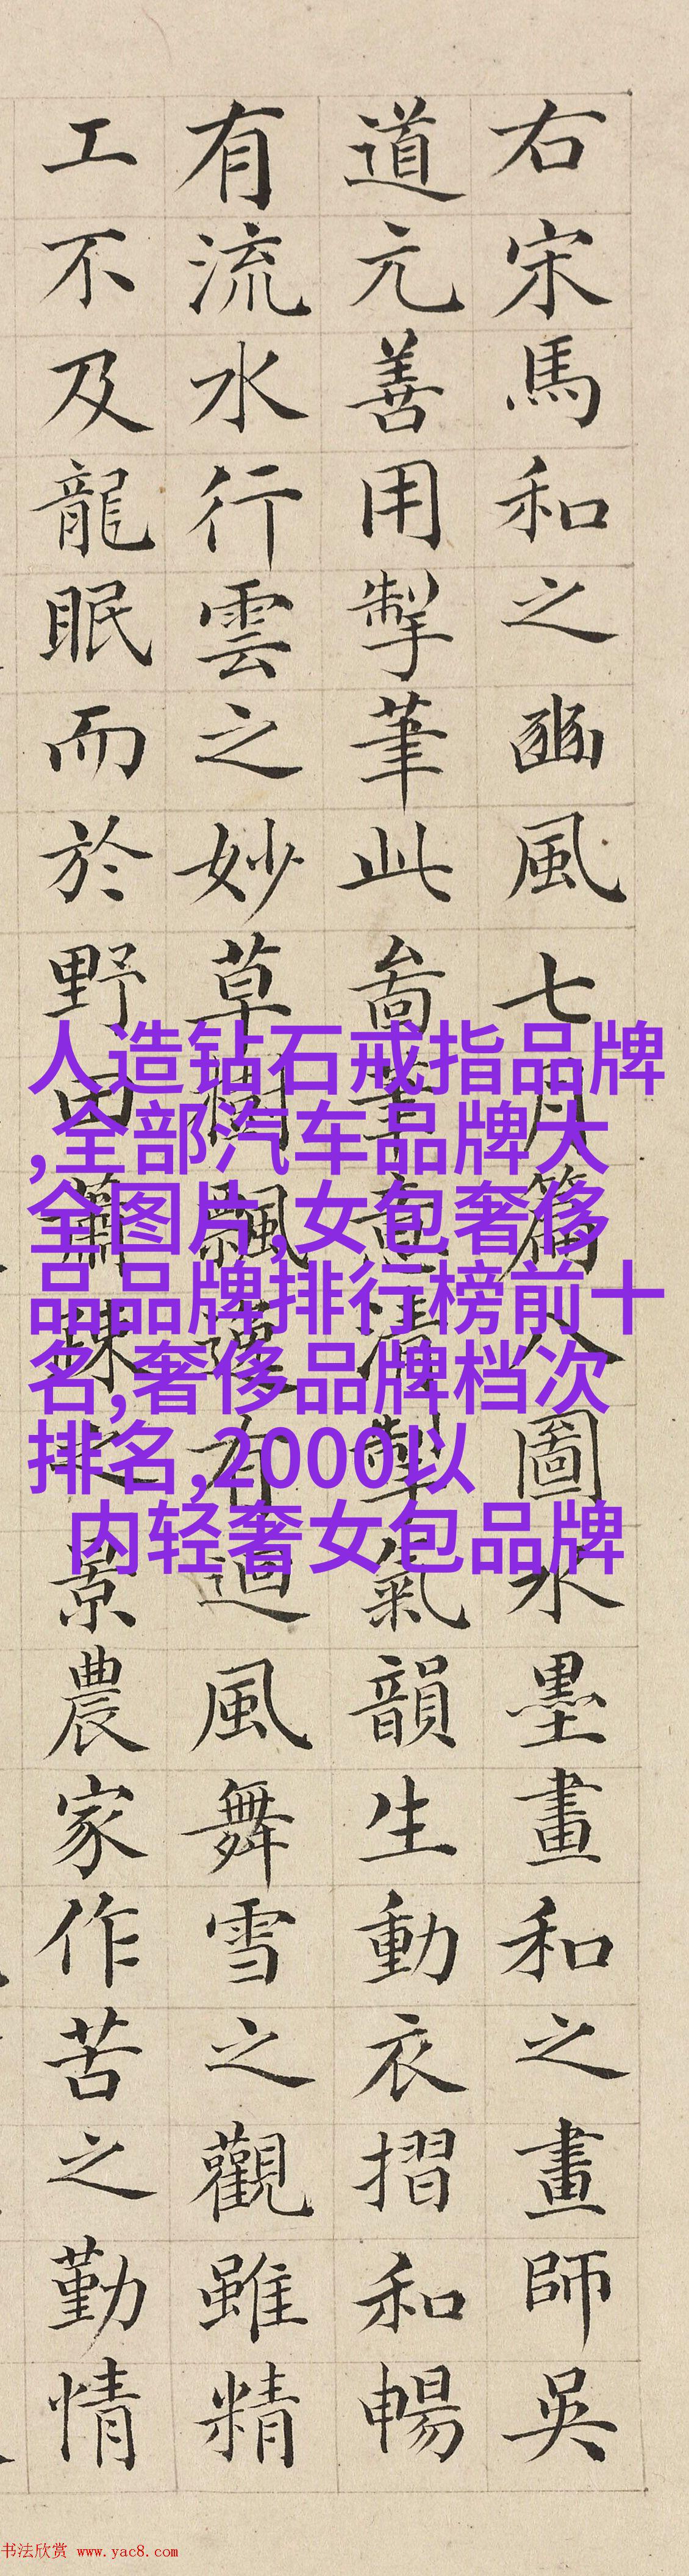 右宋馬和之豳風七月篇八圖水墨畫和之畫師吳
道元善用掣筆此啚筆意清掣氣韻生動衣摺和暢
有流水行雲之妙草樹飄有迴風舞雪之觀雖精
工不及龍眠而於野田蕭疎之景農家作苦之勤情
人造钻石戒指品牌
,全部汽车品牌大
全图片,女包奢侈
品品牌排行榜前十
名,奢侈品牌档次
排名,2000以
内轻奢女包品牌
书法欣赏 www.yac8.com